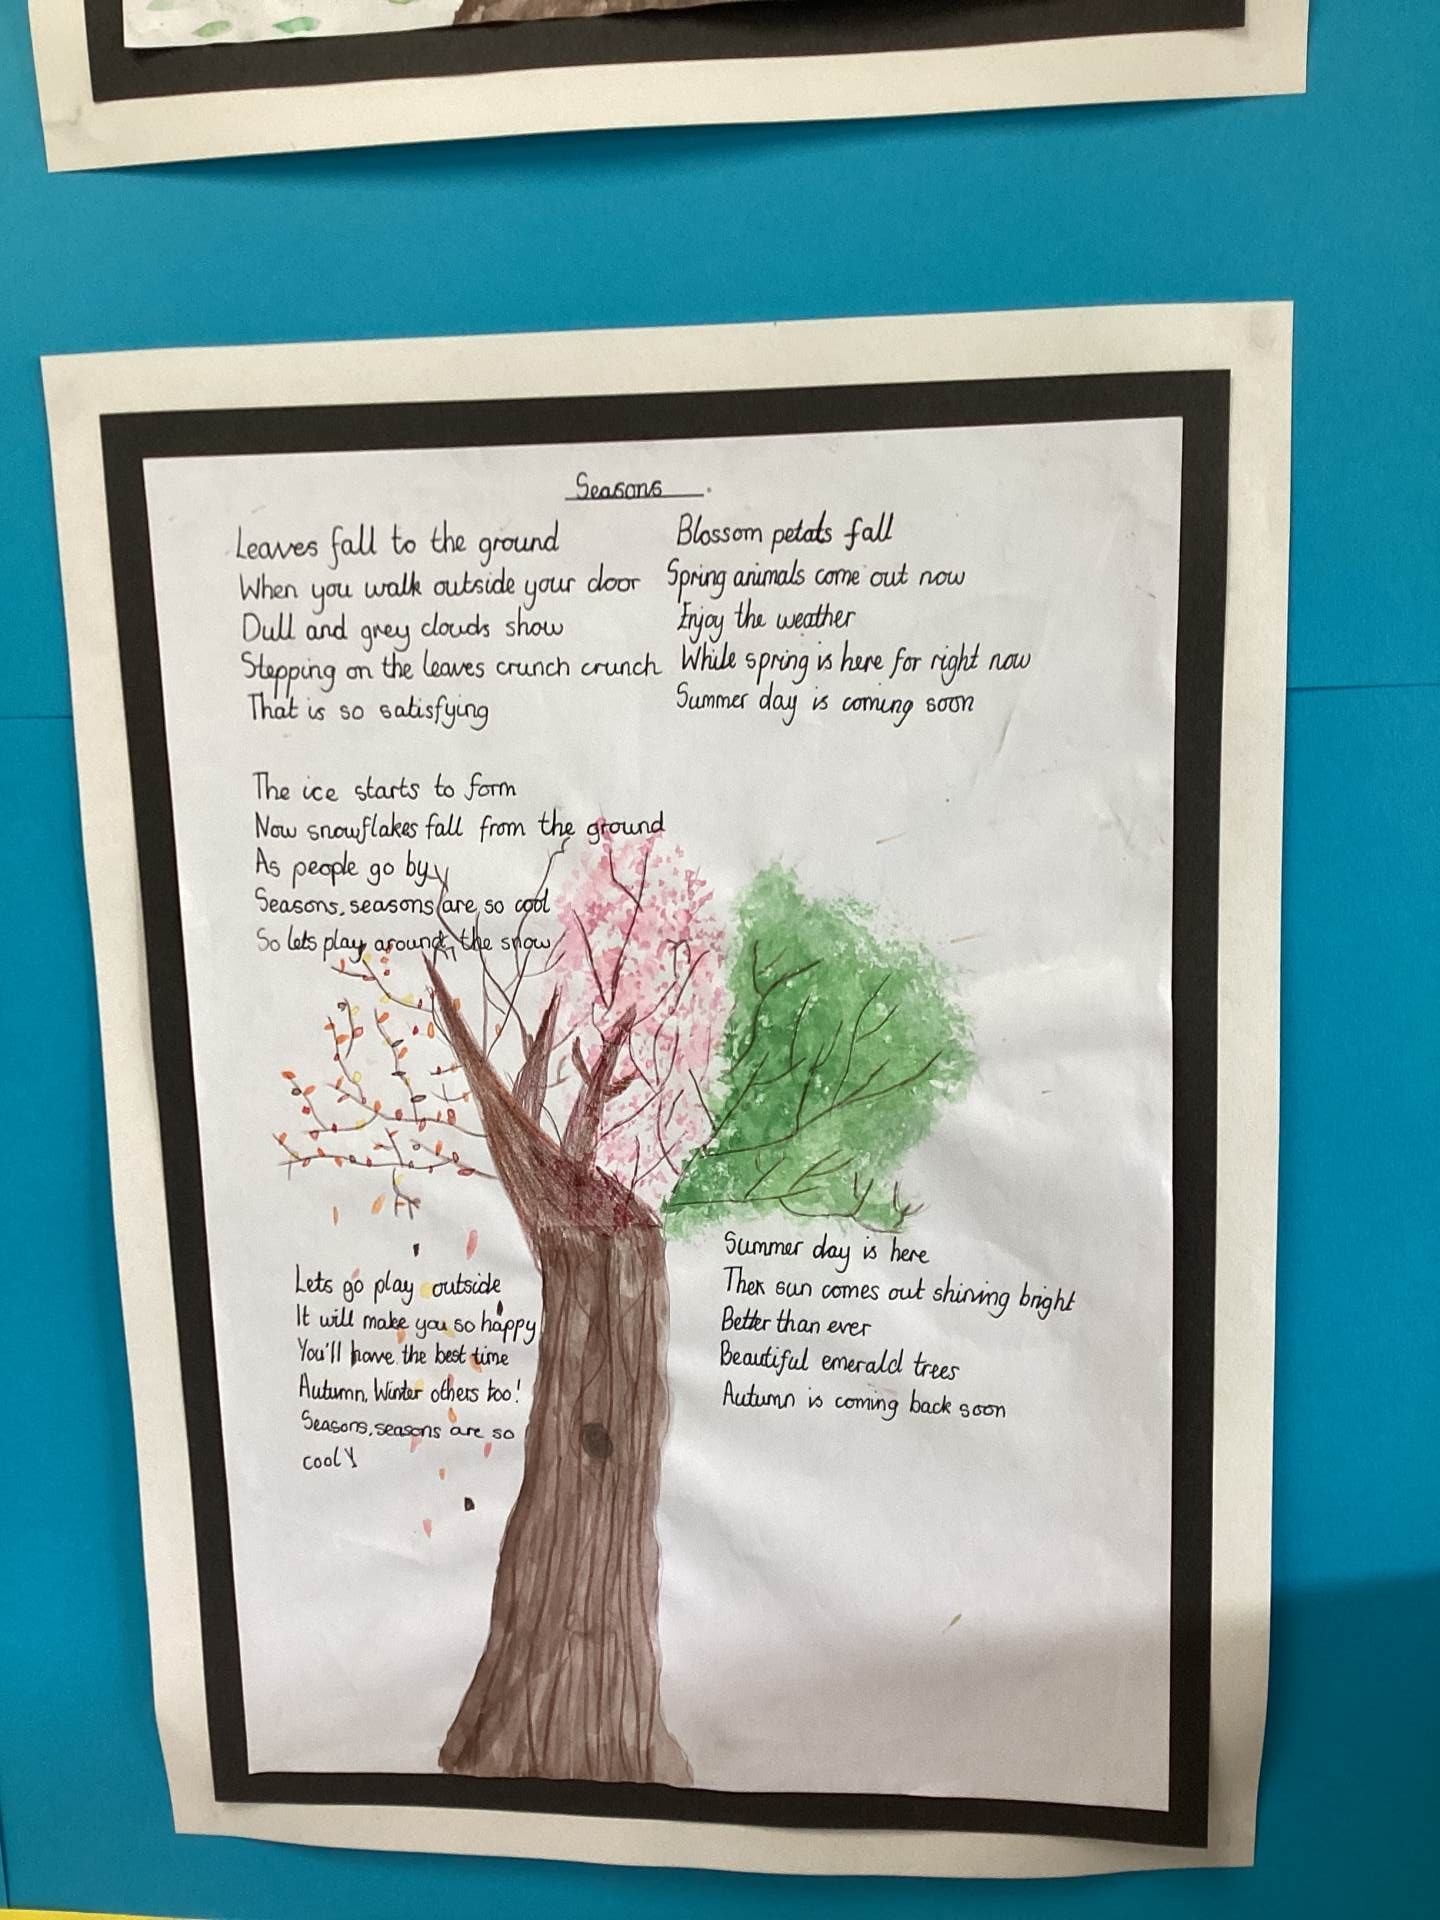 Seasons
Leaves fall to the ground
When you walk outside your door
Dull and grey clouds show
Stepping on the leaves crunch crunch
That is so satisfying
The ice starts to form
Now snowflakes fall from the ground
As people go by
Seasons, seasons are so cool
So lets play around the snow
Blossom petals fall
Spring animals come out now
Enjoy the weather
While spring is here for right now
Summer day is coming soon
Summer day is here
Then sun comes out shining bright
Better than ever
Beautiful emerald trees
Autumn is coming back soon
Lets go play outside
It will make you so happy
You'll have the best time
Autumn, Winter others too!
Seasons, seasons are so
cool